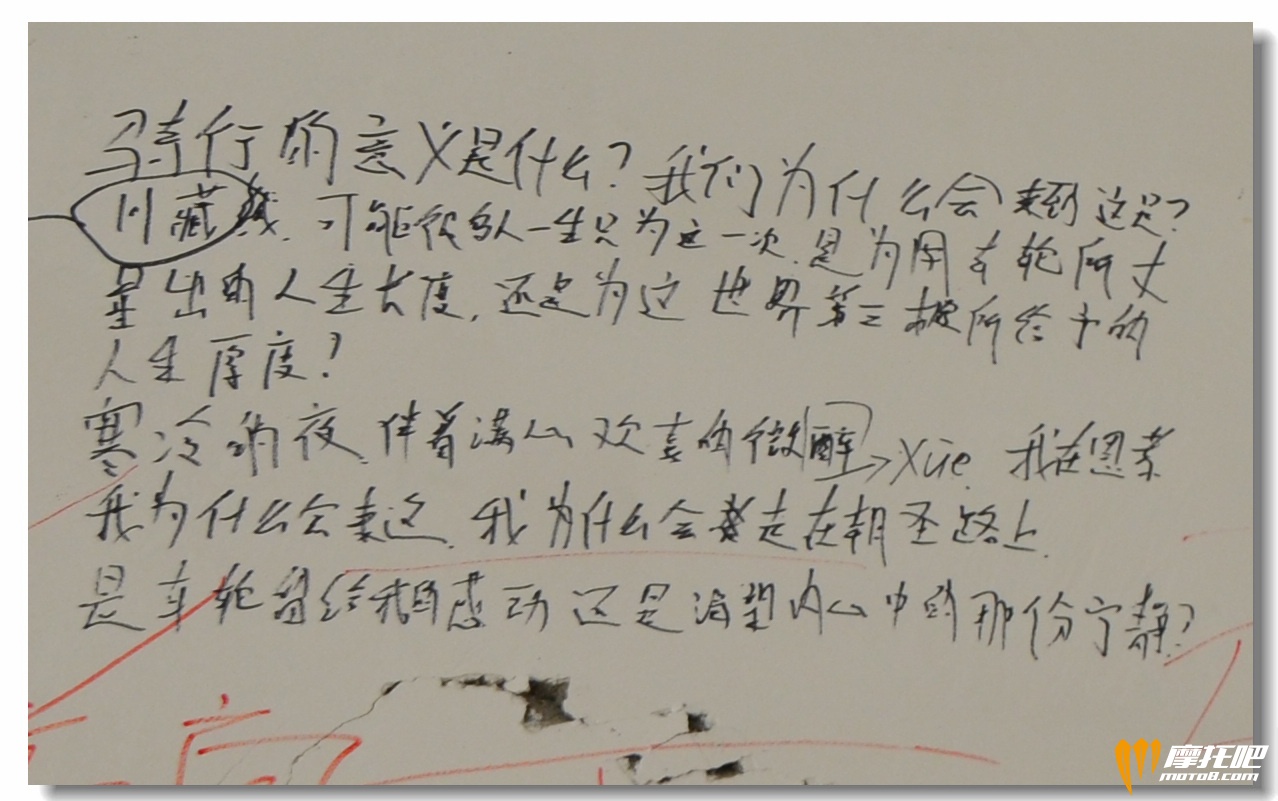 骑行的意义是什么?我们为什么会来到这儿?
川藏线,可能很多人一生只为这一次.是为用车轮所丈
量出的人生长度,还是为这世界第三极所给予的
人生厚度?
寒冷的夜,伴着满心欢喜的微醉→xüe,我在思索
我为什么会来这,我为什么会走在朝圣路上.
是车轮留给我的感动还是渴望内心中的那份宁静?
摩托吧
MOTO8.COM